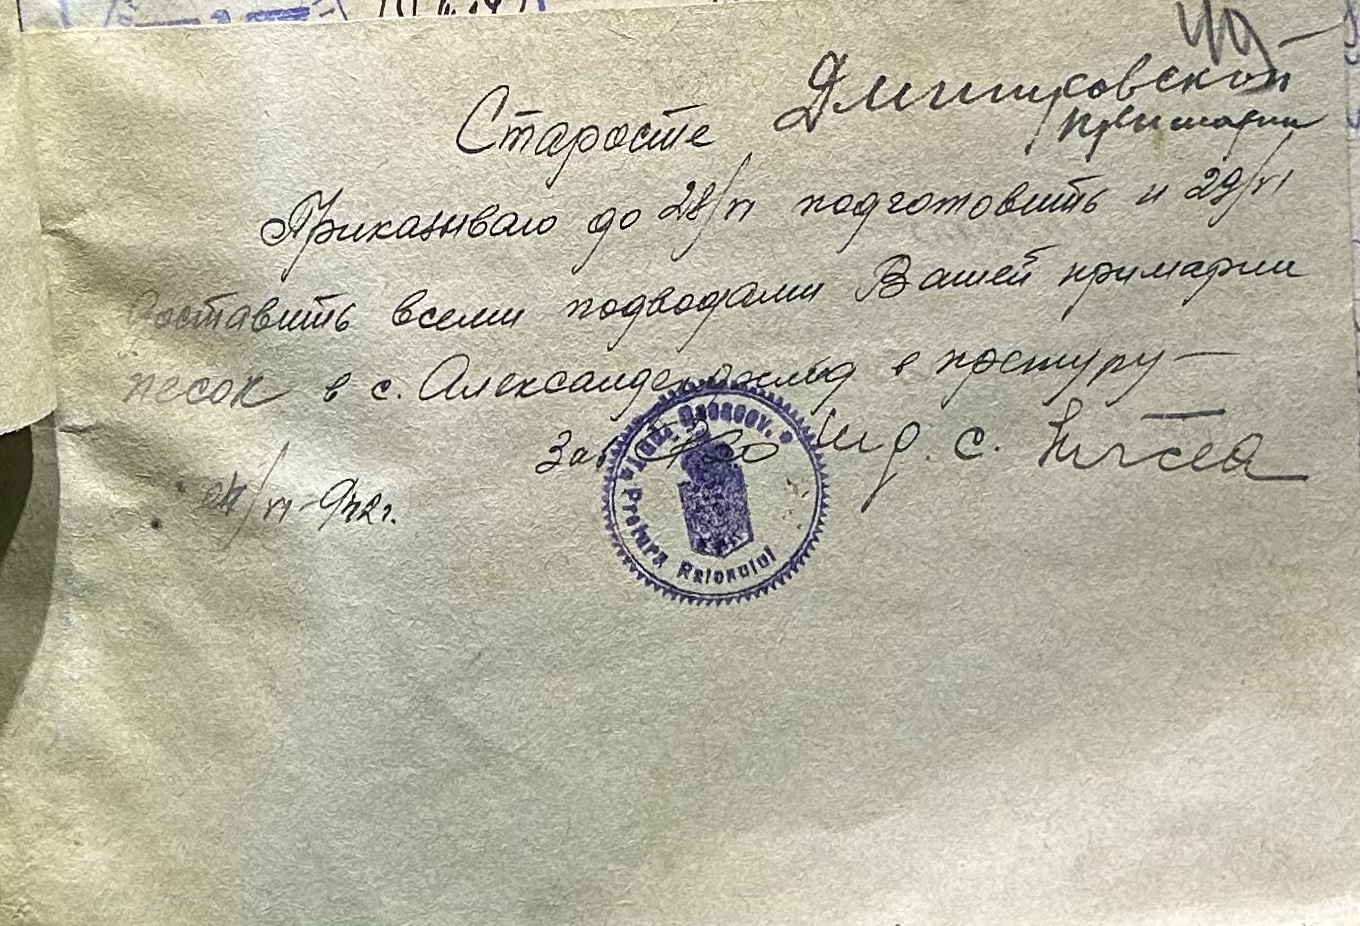 49
Старосте Дмитровской
примарии
Приказываю до 28/VI подготовить и 29/VI
доставить всеми подводами Вашей примарии
песок в с. Александерфельд в претуру —
Зав
24/VI-942г.
Pretura Raionului